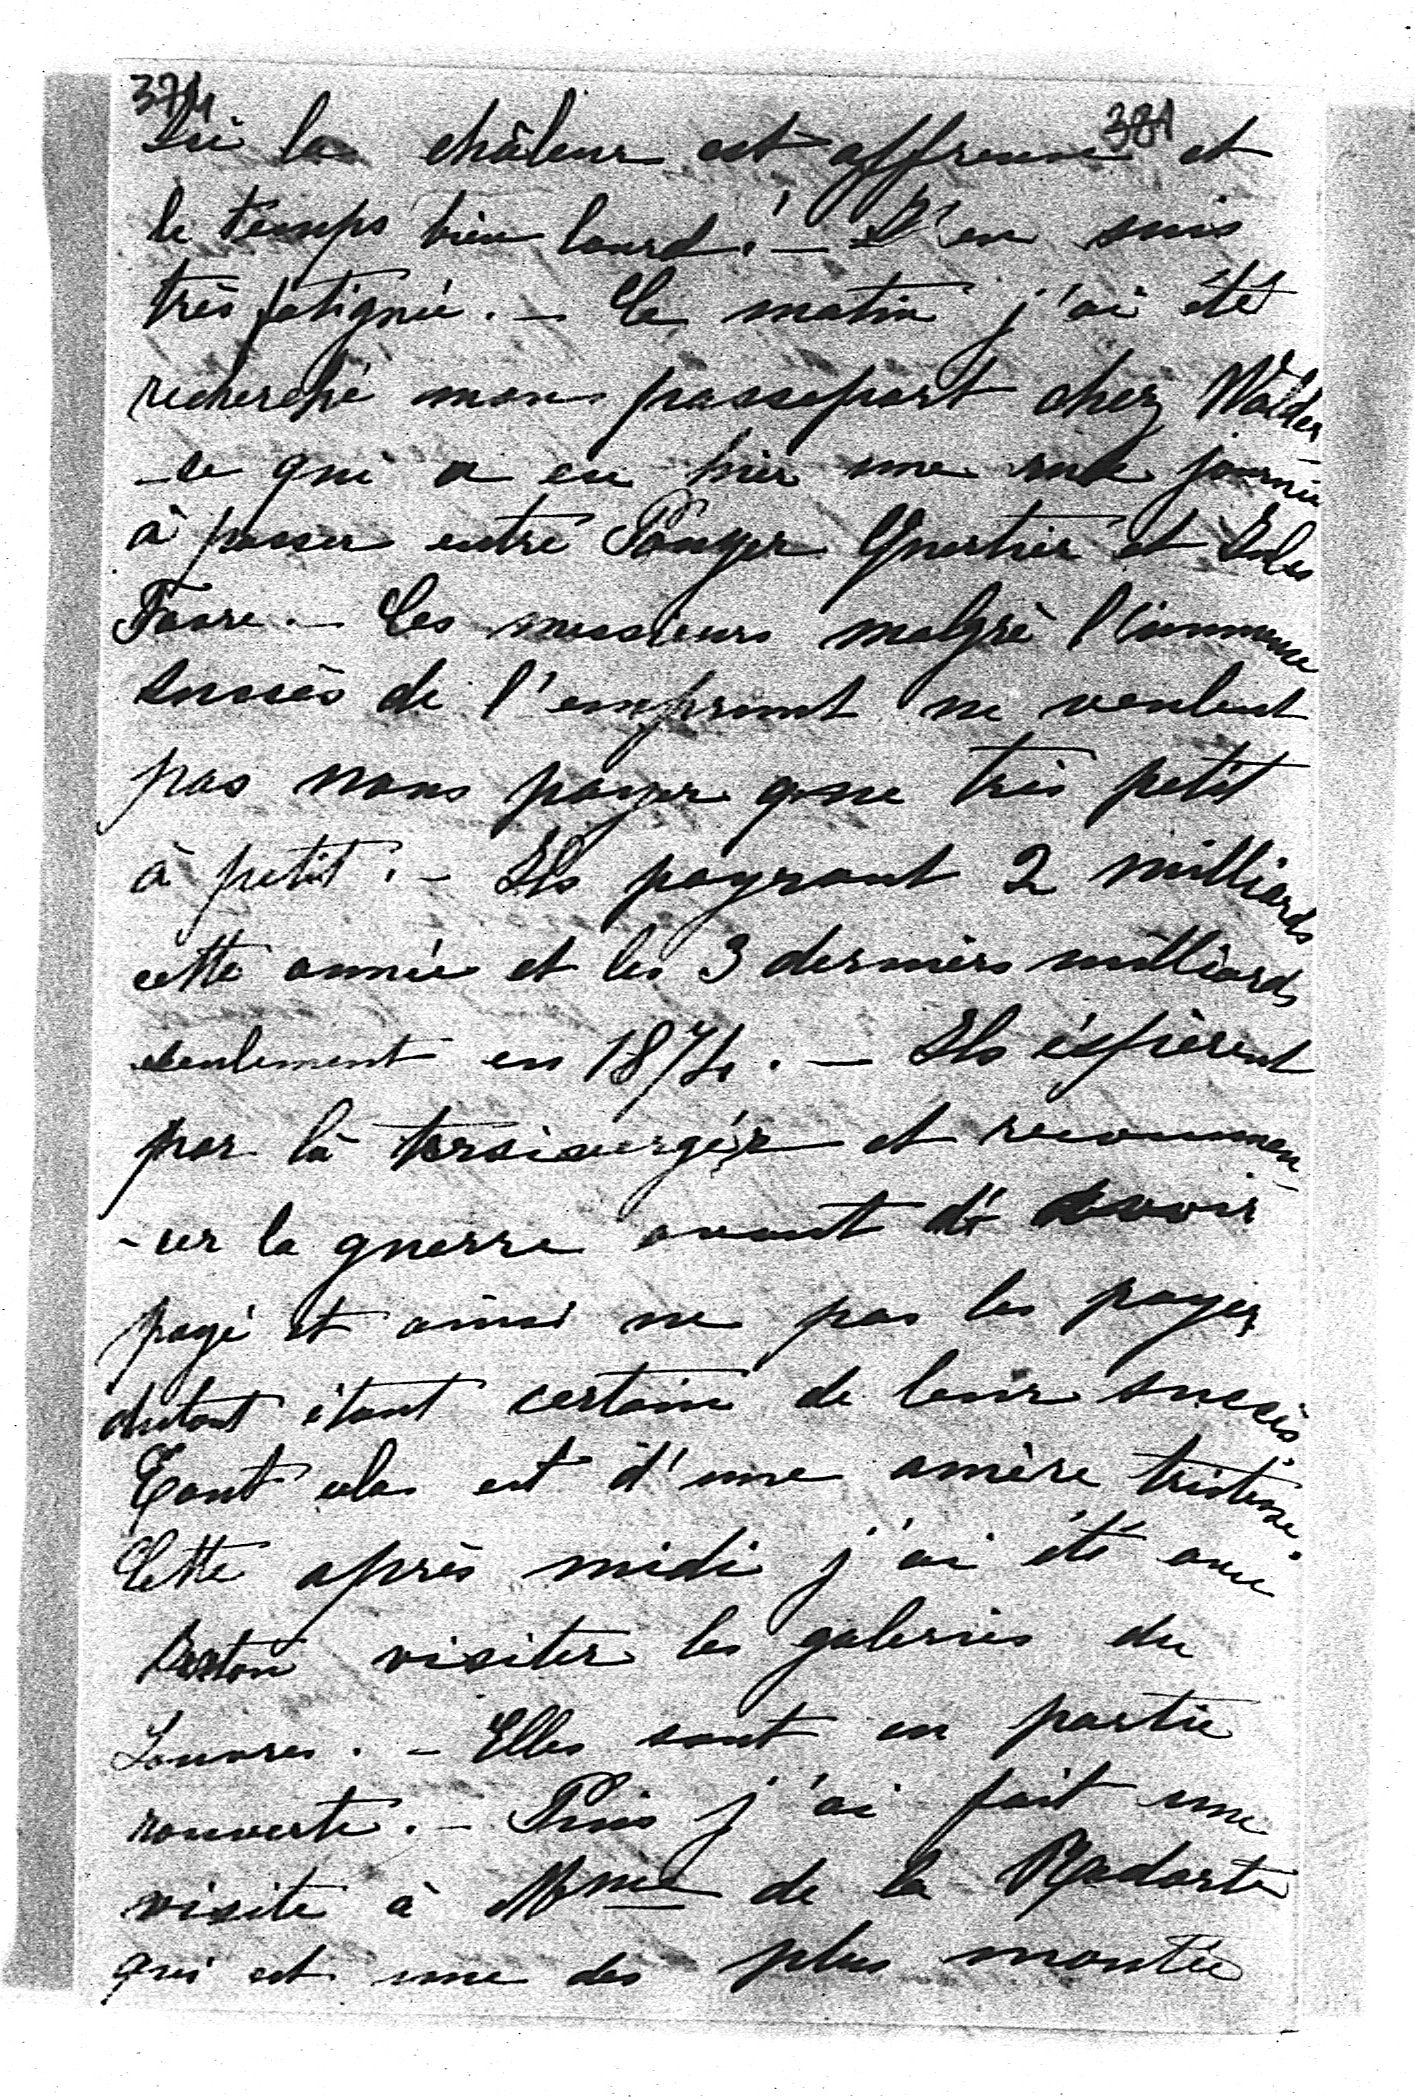 374 381
Ici la châleur est affreuse et
le temps bien lourd. – J'en suis
très fatiguée. – Ce matin j'ai été
recherché mon passeport chez Walder
-se qui a eu hier une rude journée
à passer entre Pouyer Quertier et Jules
Favre. – Ces messieurs malgré l'immense
succès de l'emprunt ne veulent
pas nous payer que très petit
à petit. – Ils payront 2 milliards
cette année et les 3 derniers milliards
seulement en 1874. – Ils éspèrent
par là et recommen-
-cer la guerre avant d' avoir
payé et ainsi ne pas les payer
dutout étant certain de leur succès.
Tout cela est d'une amère tristesse.
Cette après midi j'ai été avec
visiter les galeries du
Louvres. – Elles sont en partie
rouverte. – Puis j'ai fait une
visite à Mme de la
qui est une des plus montée